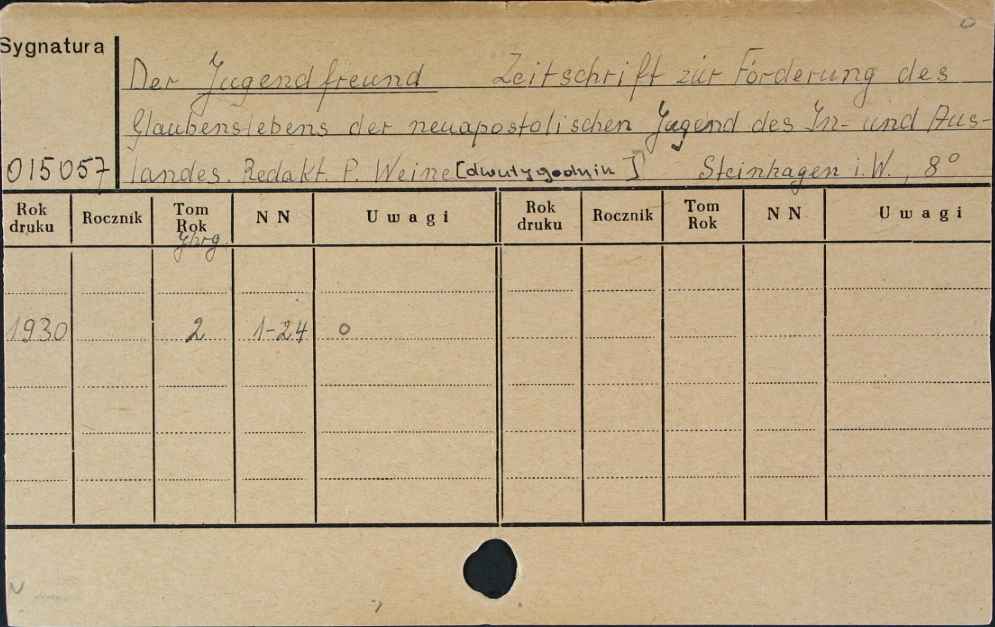 o
Sygnatura
Der Jugendfreund Zeitschrift zur Förderung des
Glaubenslebens der neuapostolischen Jugend des In- und Aus-
015057 landes. Redakt. P. Weine [dwutygodnik] Steinhagen i. W., 8°
Rok druku Rocznik Tom Rok Jhrg NN Uwagi Rok druku Rocznik Tom Rok NN Uwagi
1930 2 1-24 o